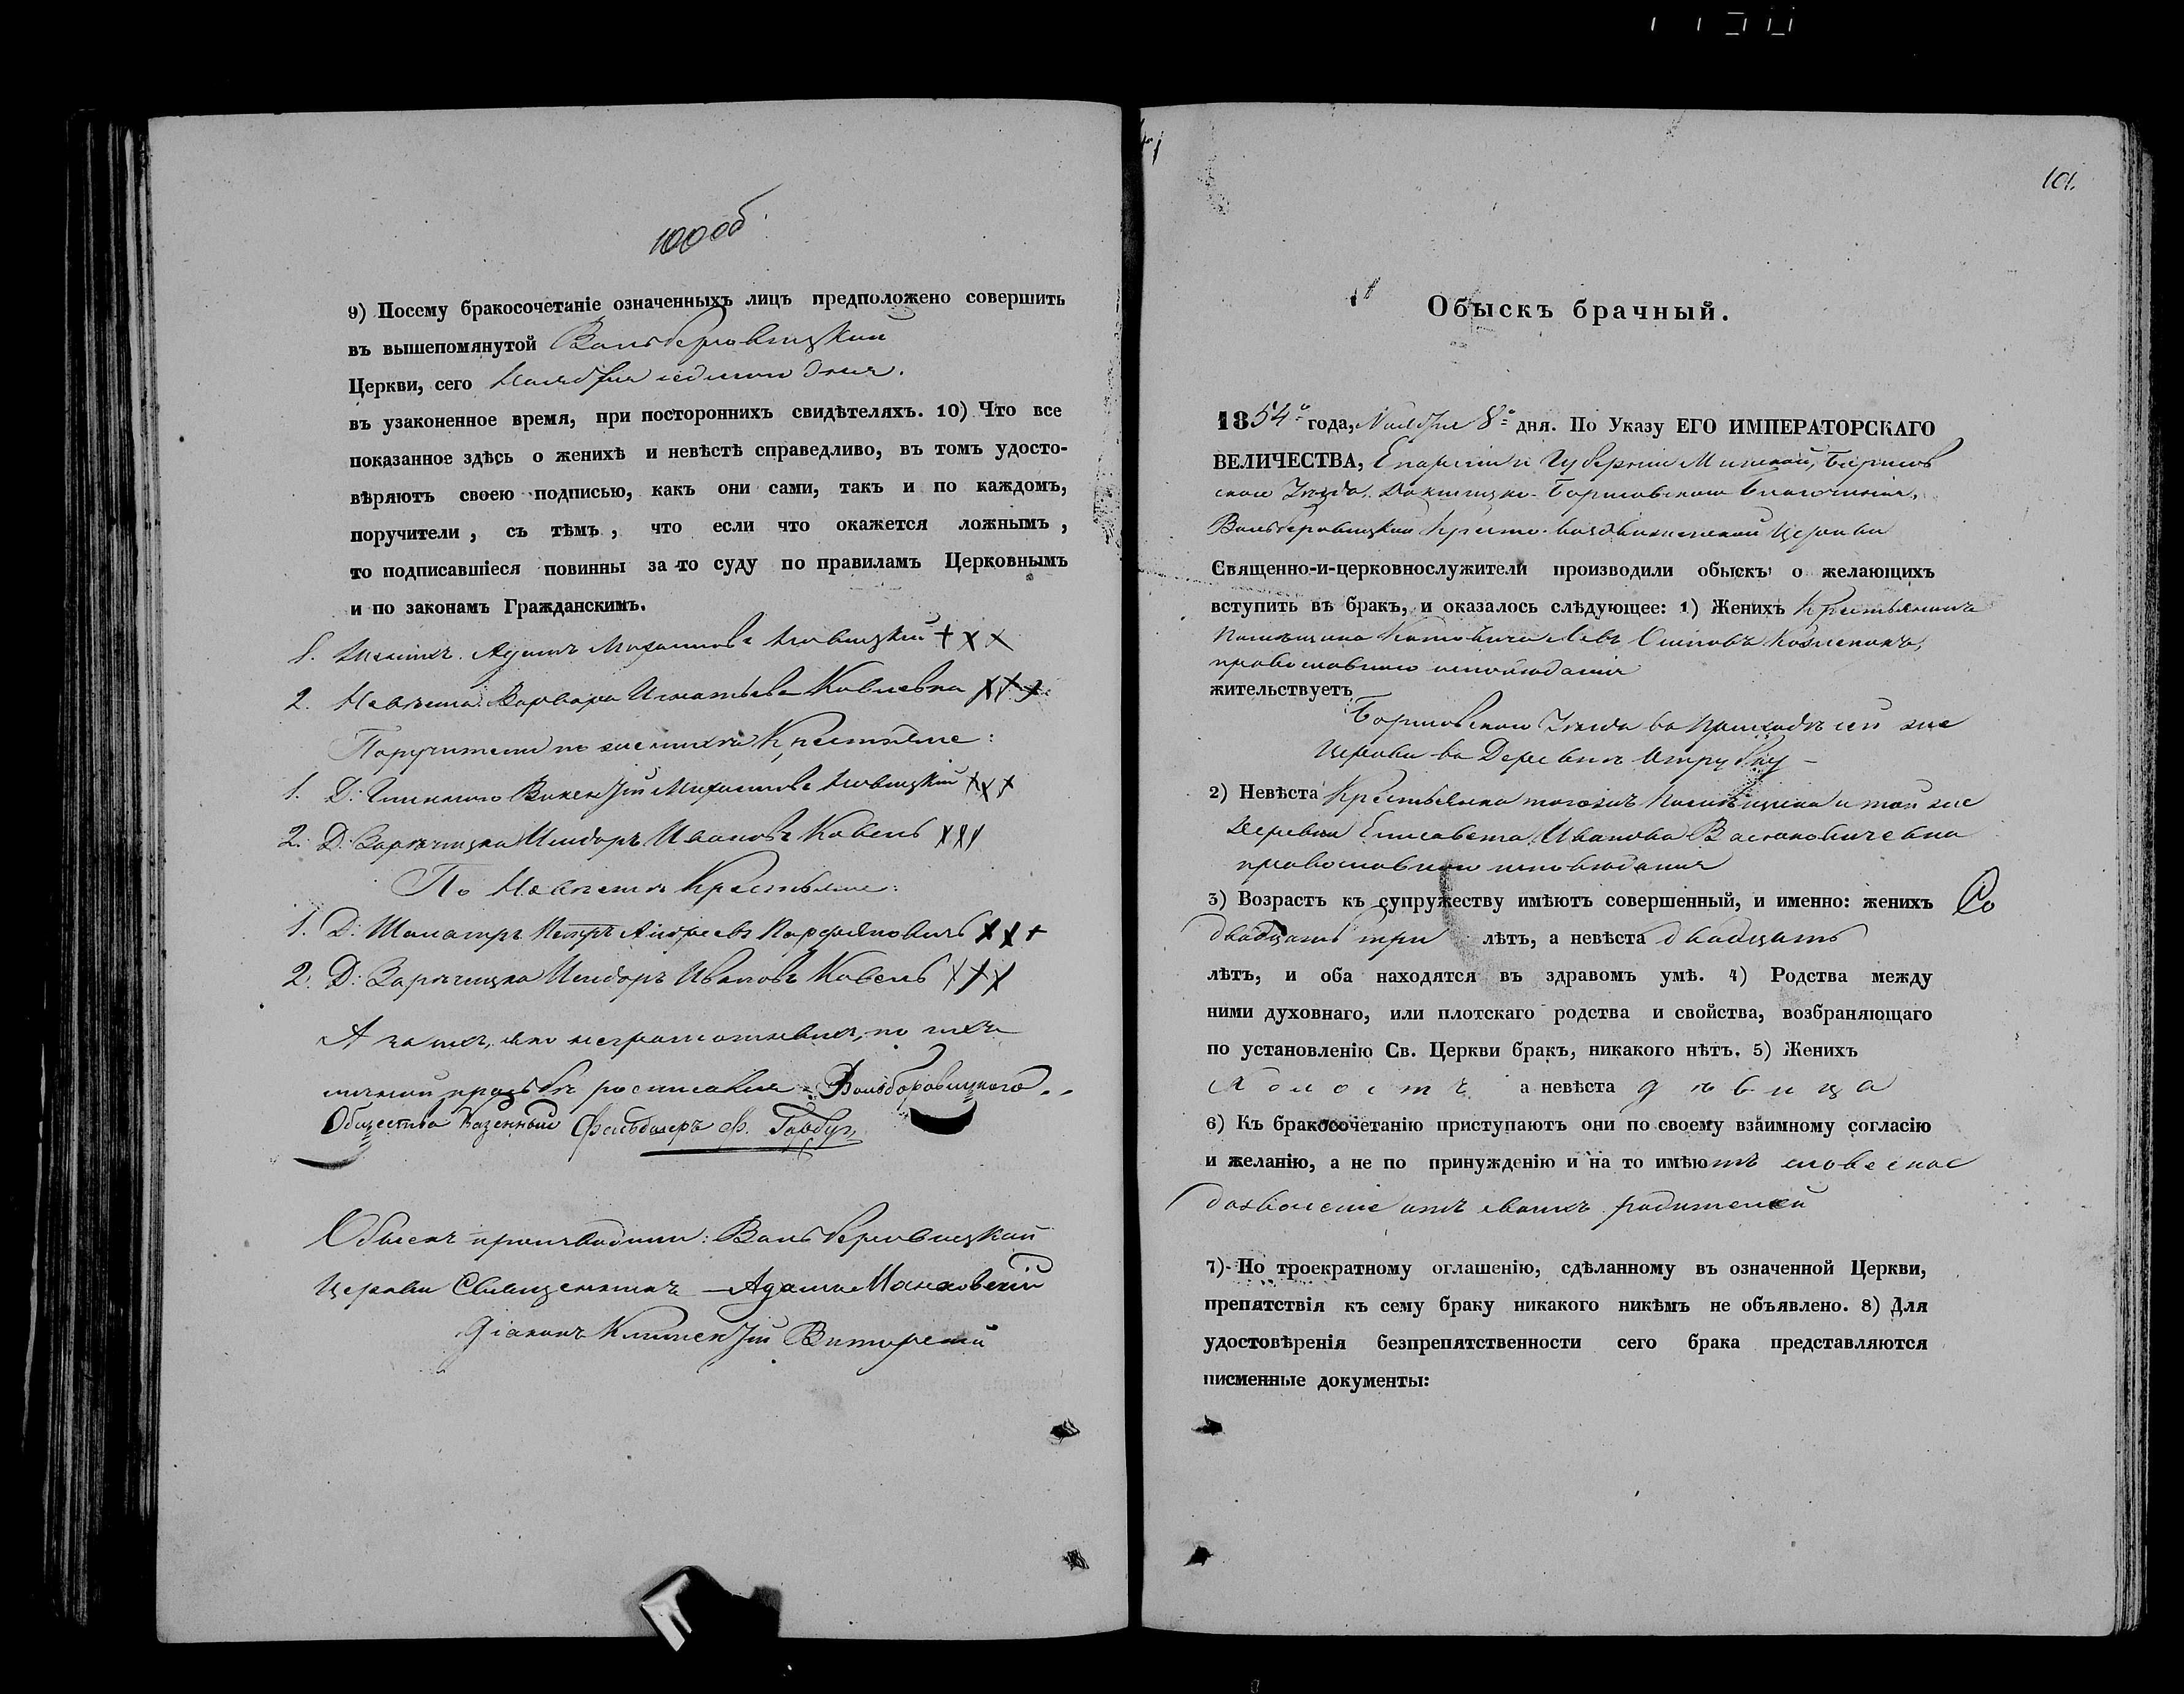 100 об
9) Посему бракосочетаніе означенныхъ лицъ предположено совершить
въ вышепомянутой Вольберовицкой
Церкви, сего Ноября седьмого дня.
въ узаконенное время, при постороннихъ свидѣтеляхъ. 10) Что все
показанное здѣсь о женихѣ и невѣстѣ справедливо, въ томъ удосто-
вѣряютъ своею подписью, какъ они сами, такъ и по каждомъ,
поручители, съ тѣмъ, что если что окажется ложнымъ,
то подписавшіеся повинны за то суду по правиламъ Церковнымъ
и по законамъ Гражданскимъ.
1. Женихъ Адамъ +XX
2. Невѣста: Варвара Игнатьева XXX
Поручители по женихѣ Крестьяне:
1. Д: Викентій XXX
2. Д: Зарѣчицка Исидоръ Ивановъ Ковель XXX
По Невѣстѣ Крестьяне:
1. Д: Петръ Андреевъ Парфяновичъ XX+
2. Д: Зарѣчицка Исидоръ Ивановъ Ковель XXX
А за ихъ, яко неграмотныхъ, по ихъ
личной прозьбѣ росписался Вольборовицкого
Общества Казенный Фельдшеръ Ф.
Обыскъ производили: Вольберовицкой
Церкви Священникъ — Адамъ
Діаконъ
101.
Обыскъ брачный.
1854 года, Ноября 8 дня. По Указу ЕГО ИМПЕРАТОРСКАГО
ВЕЛИЧЕСТВА, Епархіи и Губерніи Минской, Борисов
ского Уѣзда, Докшицко-Борисовского благочинія,
Вольберовицкой Кресто-воздвиженской Церкви
Священно-и-церковнослужители производили обыскъ о желающихъ
вступить въ бракъ, и оказалось слѣдующее: 1) Женихъ Крестьянинъ
Помѣщика Левъ Осиповъ
православного исповѣданія
жительствуетъ
Борисовского Уѣзда въ Приходѣ сей же
Церкви въ Деревнѣ
2) Невѣста Крестьянка тогожъ Помѣщика и той же
Деревни Елисавета Иванова
православного исповѣданія
3) Возрастъ къ супружеству имѣютъ совершенный, и именно: женихъ
двадцать три лѣтъ, а невѣста двадцать
лѣтъ, и оба находятся въ здравомъ умѣ. 4) Родства между
ними духовнаго, или плотскаго родства и свойства, возбраняющаго
по установленію Св. Церкви бракъ, никакого нѣтъ. 5) Женихъ
холостъ а невѣста дѣвица
6) Къ бракосочетанію приступаютъ они по своему взаимному согласію
и желанію, а не по принужденію и на то имѣютъ словесное
дозволеніе отъ своихъ родителей
7) По троекратному оглашенію, сдѣланному въ означенной Церкви,
препятствія къ сему браку никакого никѣмъ не объявлено. 8) Для
удостовѣренія безпрепятственности сего брака представляются
писменные документы: